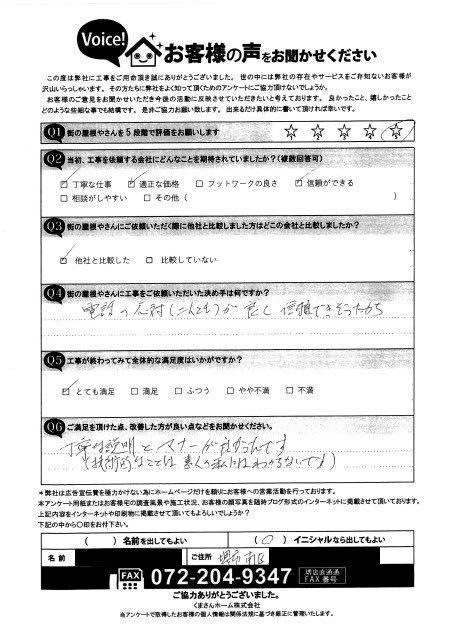 Voice!
お客様の声をお聞かせください
この度は弊社に工事をご用命頂き誠にありがとうございました。 世の中には弊社の存在やサービスをご存知ないお客様が
沢山いらっしゃいます。 その方たちに弊社をよく知って頂くためのアンケートにご協力頂けないでしょうか。
お客様のご意見をお聞かせいただき今後の活動に反映させていただきたいと考えております。 良かったこと、嬉しかったこと
どのような些細な事でも結構です。 是非ご協力お願い致します。 出来るだけ具体的に書いて頂ければ幸いです。
Q1 街の屋根やさんを5段階で評価をお願いします
Q2 当初、工事を依頼する会社にどんなことを期待されていましたか?(複数回答可)
☑ 丁寧な仕事 ☑ 適正な価格 □ フットワークの良さ ☑ 信頼ができる
□ 相談がしやすい □ その他 ( )
Q3 街の屋根やさんにご依頼いただく際に他社と比較しました方はどこの会社と比較しましたか?
☑ 他社と比較した □ 比較していない
Q4 街の屋根やさんに工事をご依頼いただいた決め手は何ですか?
電話の応対(こんども)が良く 信頼できそうだから
Q5 工事が終わってみて全体的な満足度はいかがですか?
☑ とても満足 □ 満足 □ ふつう □ やや不満 □ 不満
Q6 ご満足を頂けた点、改善した方が良い点などをお聞かせください。
丁寧な説明と マナーが良かったです
(技術的なことは 素人の私にはわからないです)
*弊社は広告宣伝費を極力かけない為にホームページだけを頼りにお客様への営業活動を行っております。
本アンケート用紙またはお客様宅の調査風景や施工状況、お客様の顔写真を随時ブログ形式のインターネットに掲載させて頂いております。
上記内容をインターネットや印刷物に掲載させて頂いてもよろしいでしょうか?
下記の中から〇印をお付下さい。
( ) 名前を出してもよい (〇) イニシャルなら出してもよい
名前 ご住所 堺市 南区
FAX 072-204-9347 堺店直通通 FAX 番号
ご協力ありがとうございました。
くまさんホーム株式会社
当アンケートで取得したお客様の個人情報は関係法規に基づき厳正に管理いたします。